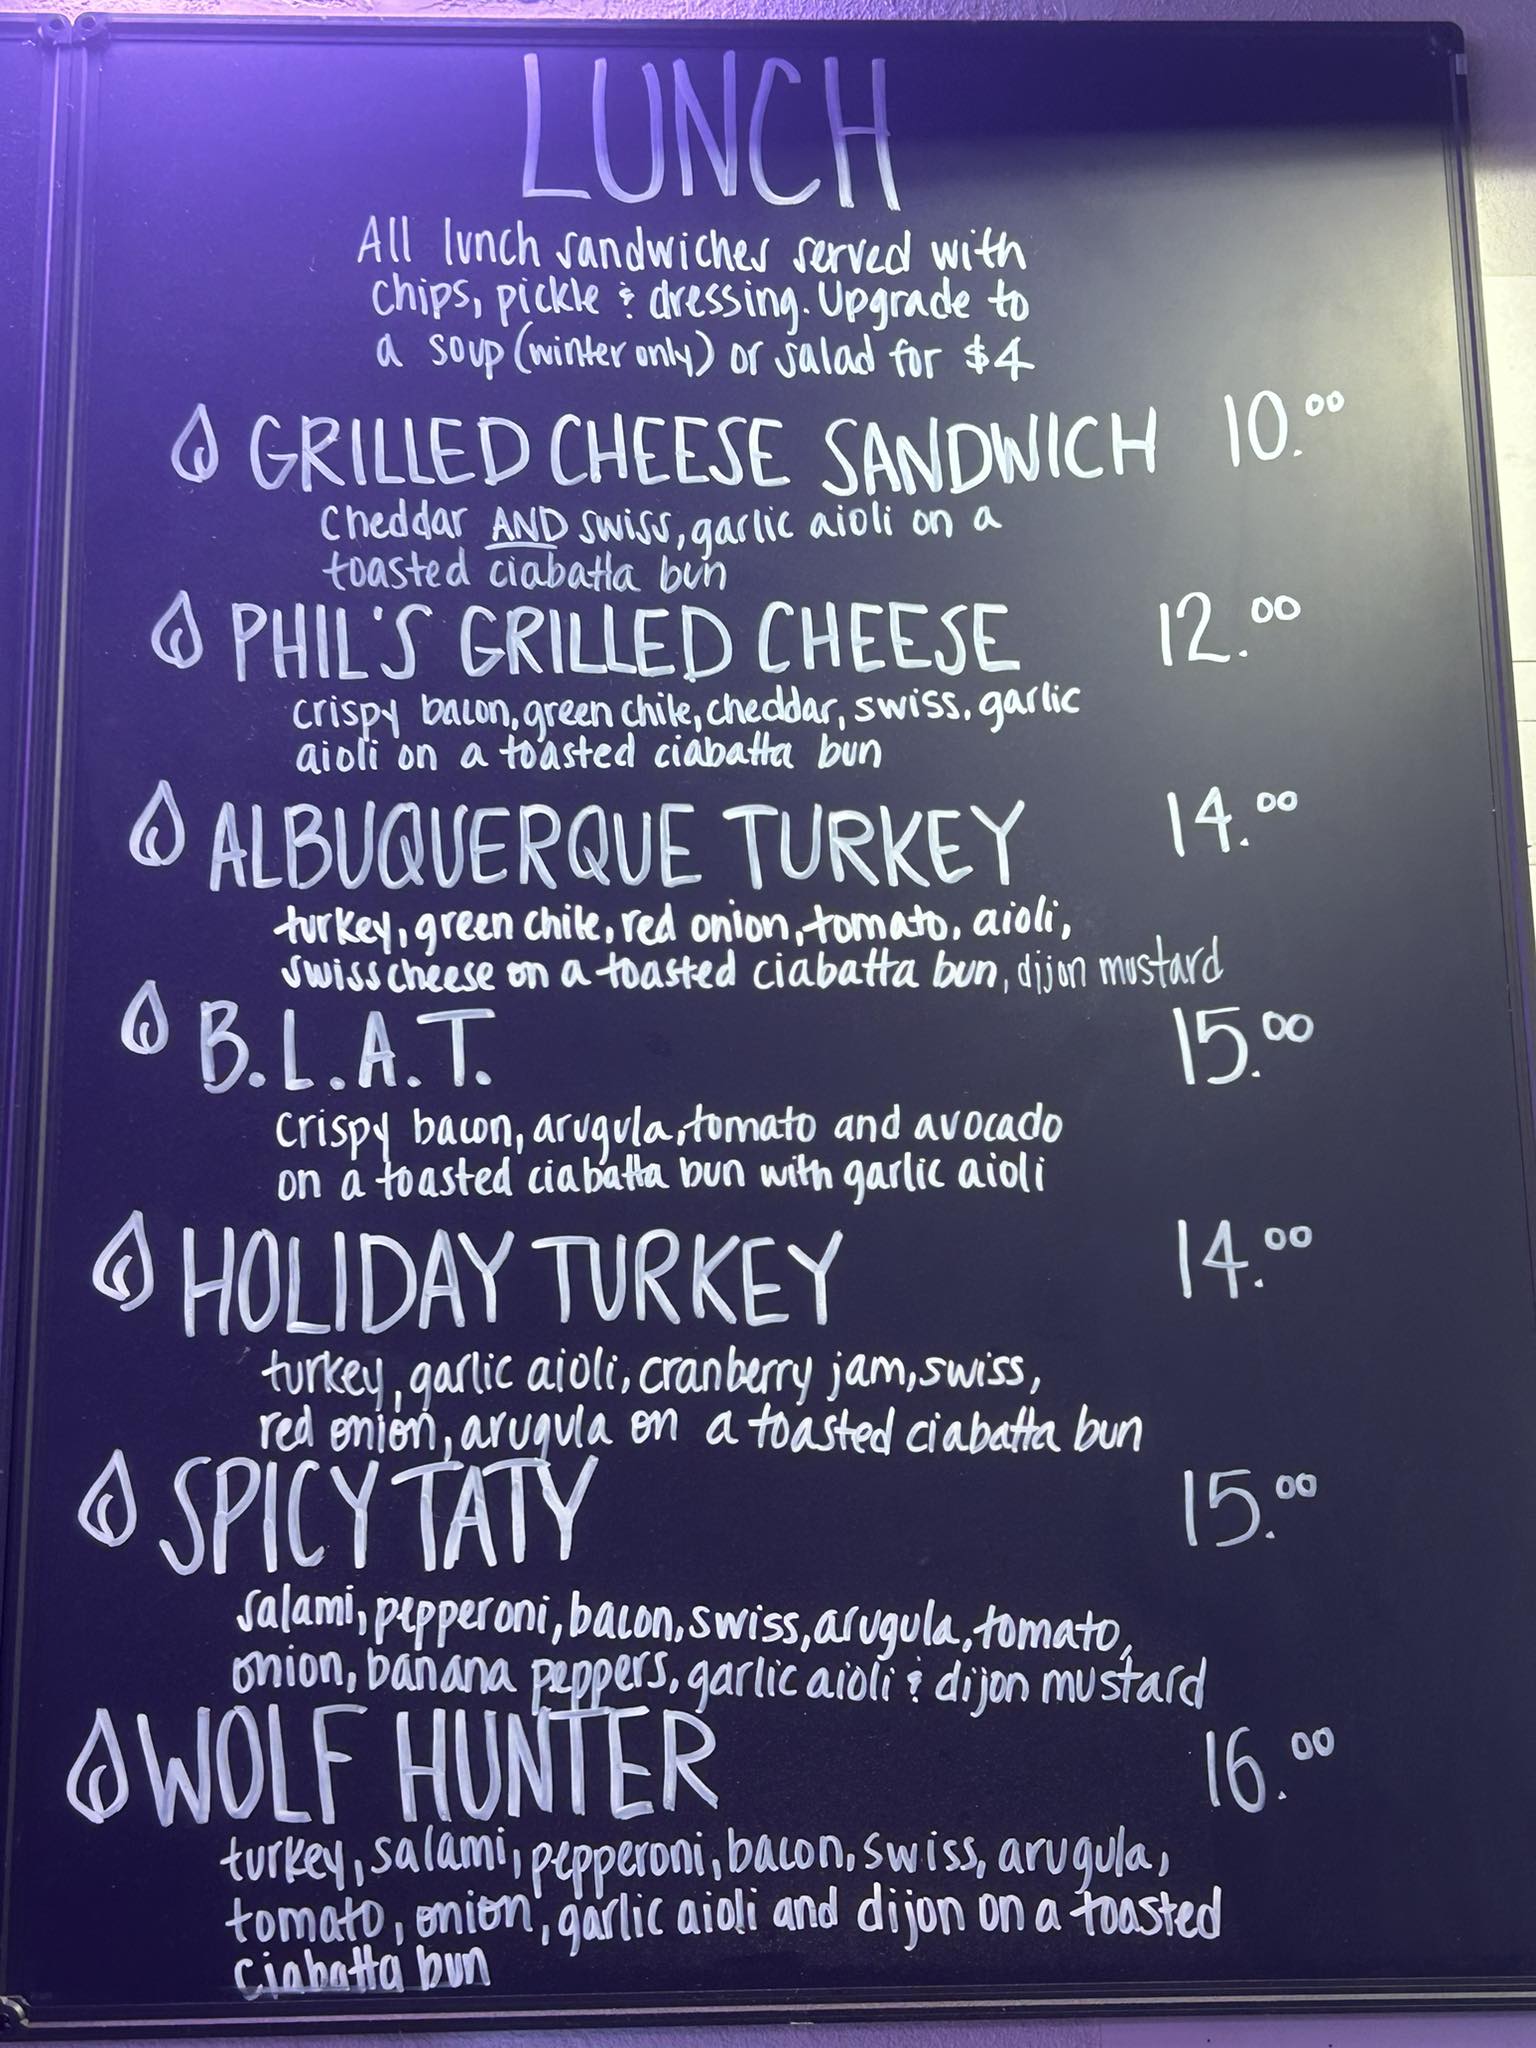 LUNCH
All lunch sandwiches served with
chips, pickle & dressing. Upgrade to
a soup (winter only) or salad for $4
GRILLED CHEESE SANDWICH 10.00
cheddar AND swiss, garlic aioli on a
toasted ciabatta bun
PHIL'S GRILLED CHEESE 12.00
crispy bacon, green chile, cheddar, swiss, garlic
aioli on a toasted ciabatta bun
ALBUQUERQUE TURKEY 14.00
turkey, green chile, red onion, tomato, aioli,
swiss cheese on a toasted ciabatta bun, dijon mustard
B.L.A.T. 15.00
crispy bacon, arugula, tomato and avocado
on a toasted ciabatta bun with garlic aioli
HOLIDAY TURKEY 14.00
turkey, garlic aioli, cranberry jam, swiss,
red onion, arugula on a toasted ciabatta bun
SPICY TATY 15.00
salami, pepperoni, bacon, swiss, arugula, tomato,
onion, banana peppers, garlic aioli & dijon mustard
WOLF HUNTER 16.00
turkey, salami, pepperoni, bacon, swiss, arugula,
tomato, onion, garlic aioli and dijon on a toasted
ciabatta bun